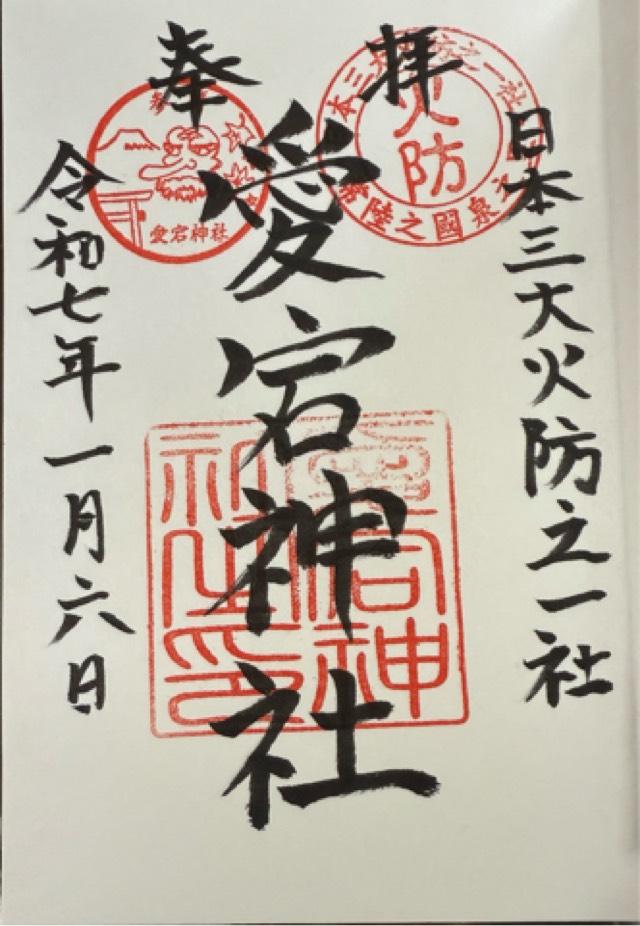 奉拝
日本三大火防之一社
愛宕神社
令和七年一月六日
火防
常陸之國泉
愛宕神社
愛宕神社之印